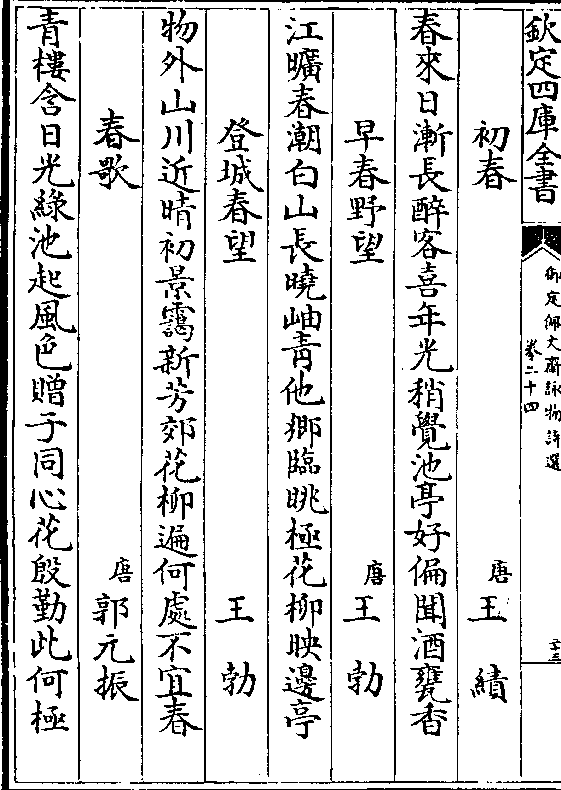 欽定四庫全書
御定佩文齋詠物詩選
卷二十四
二十三
初春 唐 王績
春來日漸長醉客喜年光稍覺池亭好偏聞酒甕香
早春野望 唐 王勃
江曠春潮白山長曉岫青他鄉臨眺極花柳映邊亭
登城春望 王勃
物外山川近晴初景靄新芳郊花柳遍何處不宜春
春歌 唐 郭元振
青樓含日光綠池起風色贈子同心花殷勤此何極